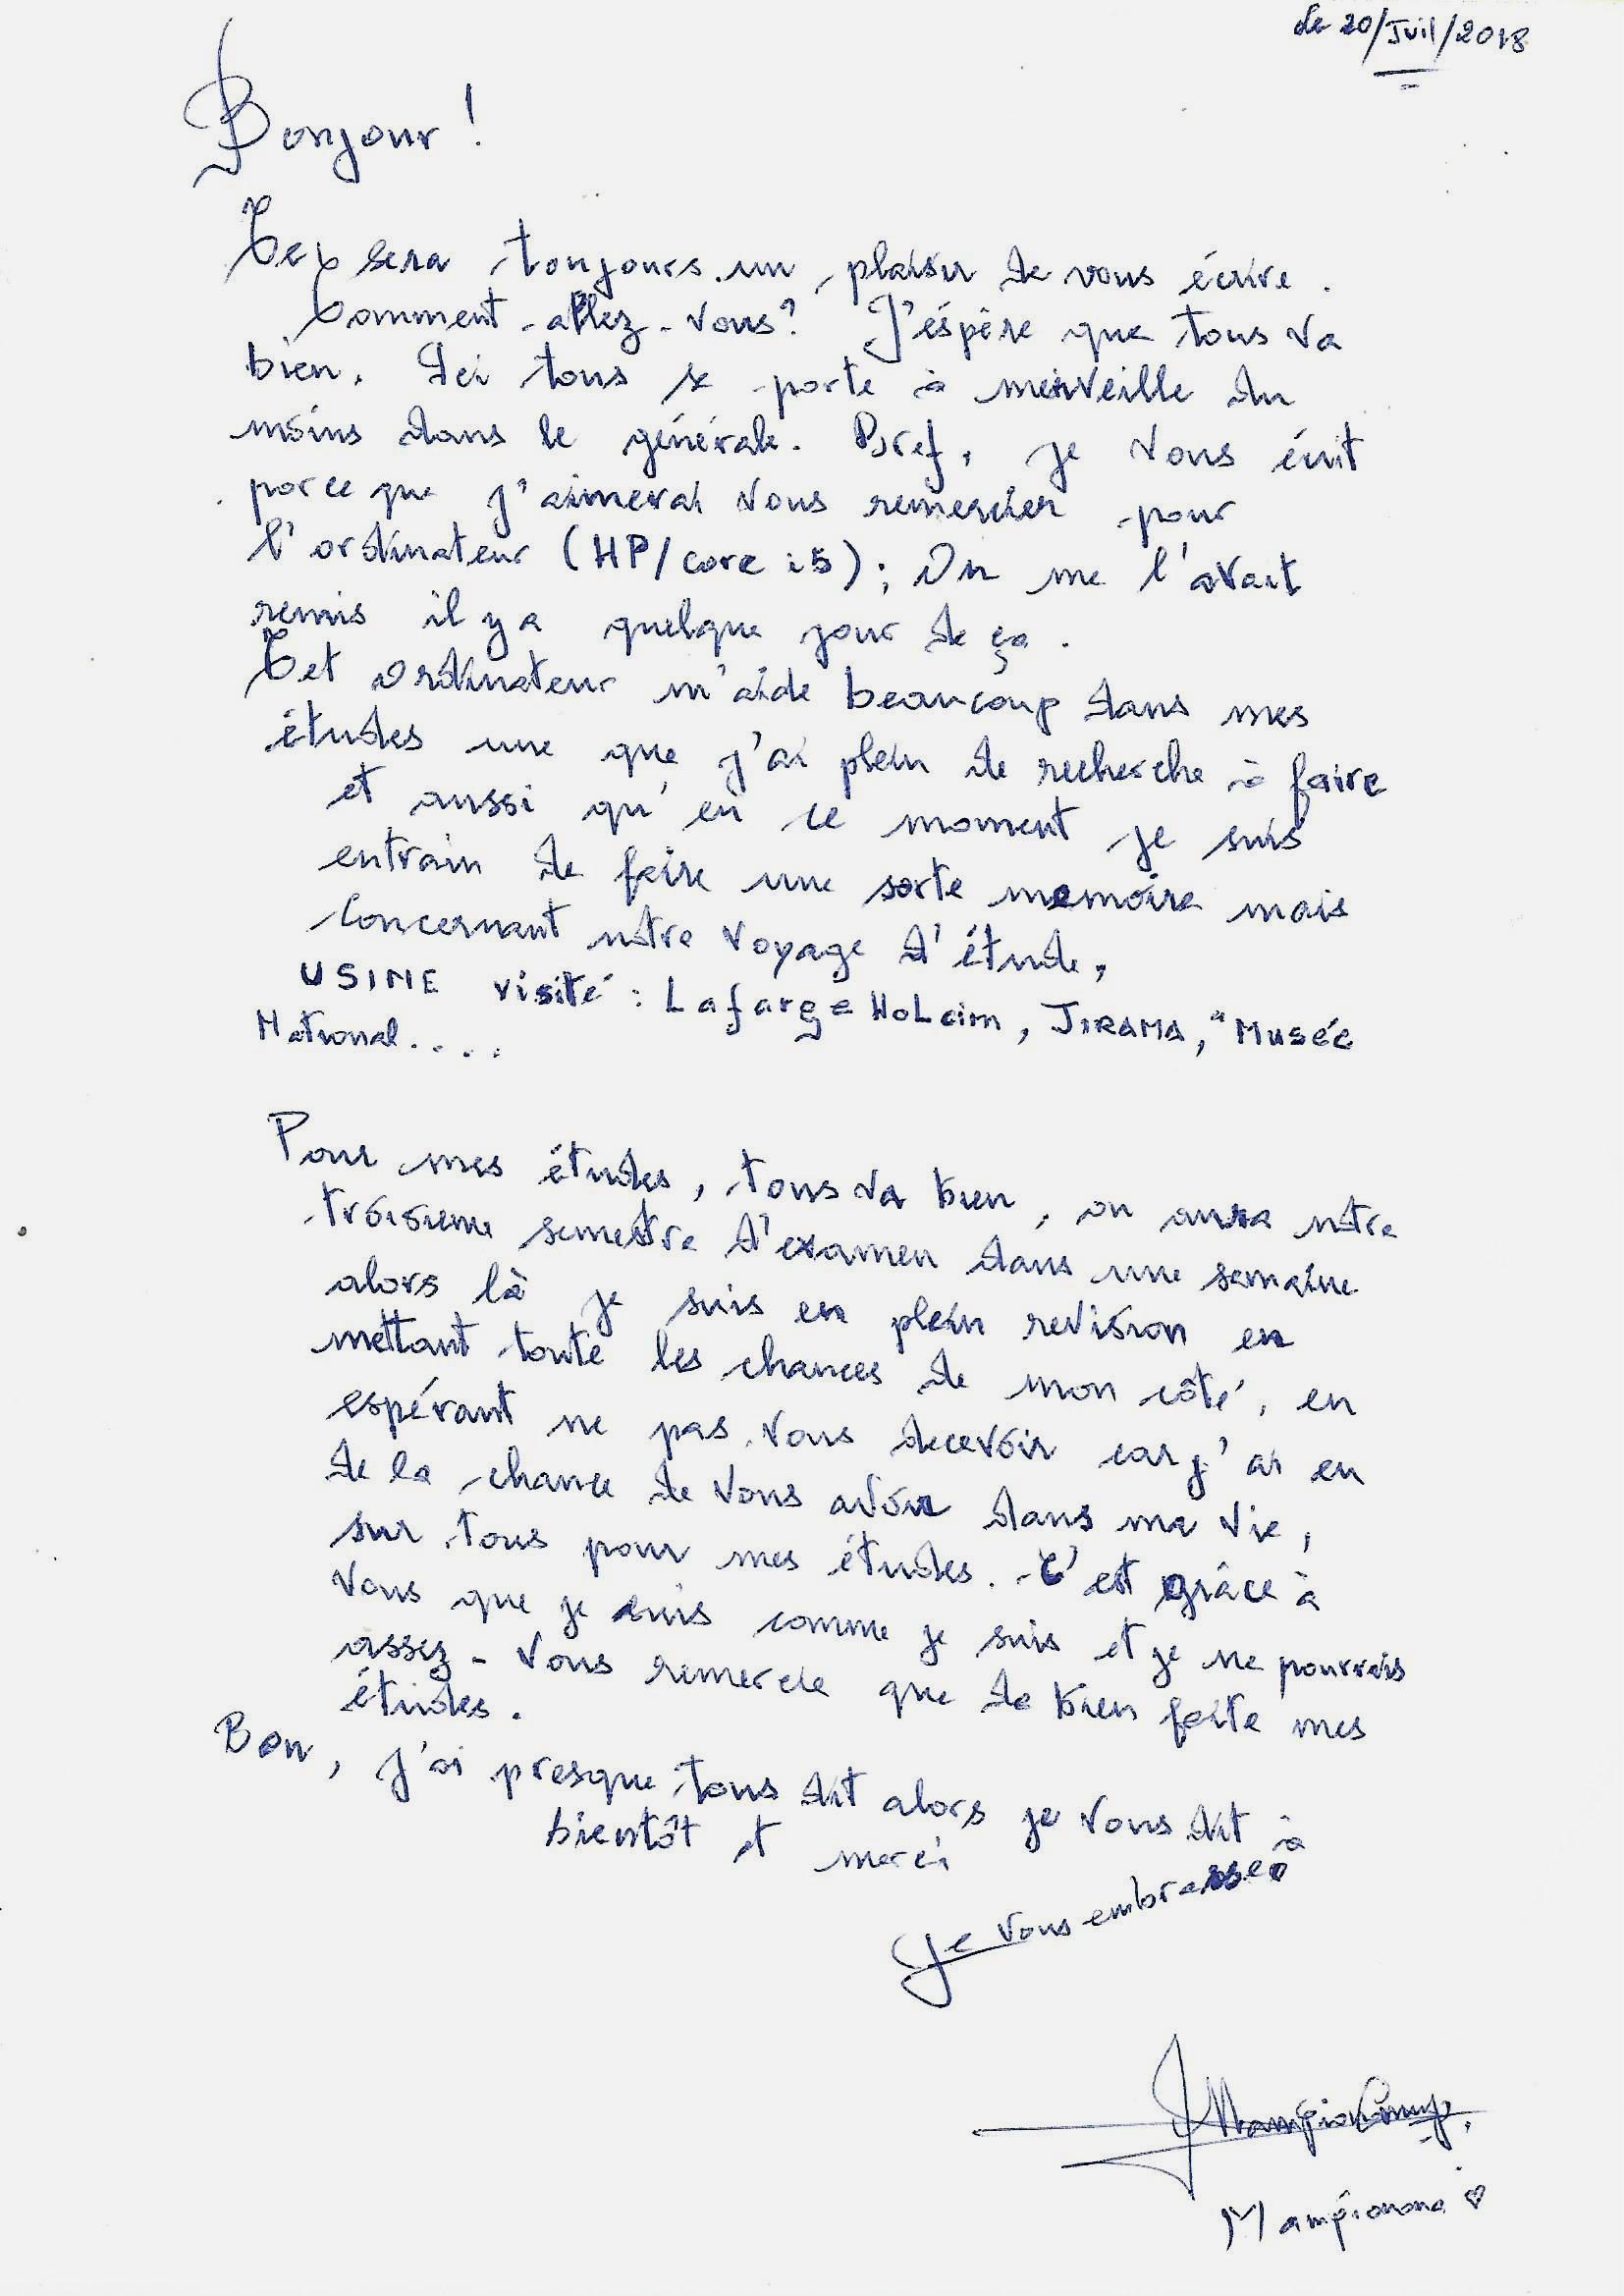 Le 20/Juil/2018
Bonjour !
Ce sera toujours un plaisir de vous écrire.
Comment-allez-vous? J'éspère que tous va
bien. Ici tous se porte à merveille du
moins dans le générale. Bref, je vous écrit
parce que j'aimerai vous remercier pour
l'ordinateur (HP/core i5); On me l'avait
remis il y a quelque jour de ça.
Cet ordinateur m'aide beaucoup dans mes
études une que j'ai plein de recherche à faire
et aussi qu'en ce moment je suis
entrain de faire une sorte memoire mais
Concernant notre voyage d'étude,
USINE visité : Lafarge HoLcim, JIRAMA, "Musée
National....
Pour mes études, tous va bien, on aura notre
troisieme semestre d'examen dans une semaine
alors là je suis en plein revision en
mettant toute les chances de mon côté, en
espérant ne pas vous decevoir car j'ai eu
de la chance de vous avoir dans ma vie,
sur tous pour mes études. C'est grâce à
vous que je suis comme je suis et je ne pourrais
assez-vous remercie que de bien faite mes
études.
Bon, j'ai presque tous dit alors je vous dit à
bientôt et merci
Je vous embrasse
Mampionona